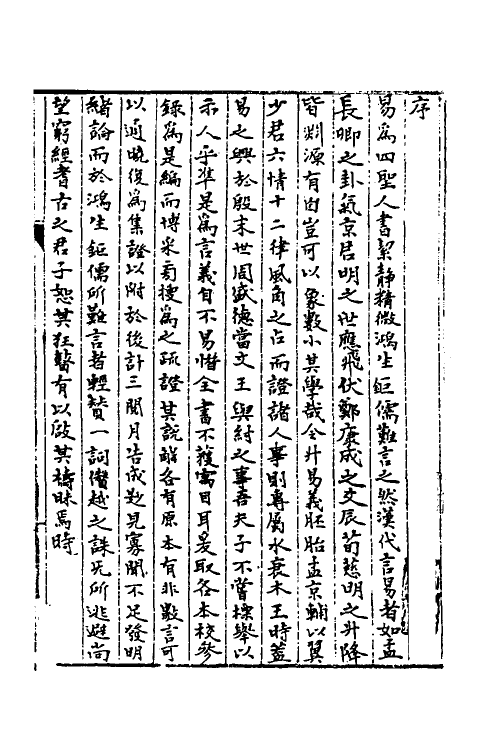 序
易為四聖人書絜靜精微鴻生鉅儒難言之然漢代言易者如孟
長卿之卦氣京君明之世應飛伏鄭康成之爻辰荀慈明之升降
皆淵源有自豈可以象數小其學哉令升易義胚胎孟京輔以翼
少君六情十二律風角之占而證諸人事則專屬水衰木王時蓋
易之興於殷末世周盛德當文王與紂之事吾夫子不嘗標舉以
示人乎準是為言義自不易惜全書不獲寓目耳爰取各本校參
錄為是編而博采旁搜為之疏證其說雖各有原本有非數言可
以通曉復為集證以附於後計三閱月告成趑見寡聞不足發明
緒論而於鴻生鉅儒所難言者輕贊一詞僭越之誅旡所逃避尚
望窮經耆古之君子恕其狂瞽有以啟其檮昧焉時